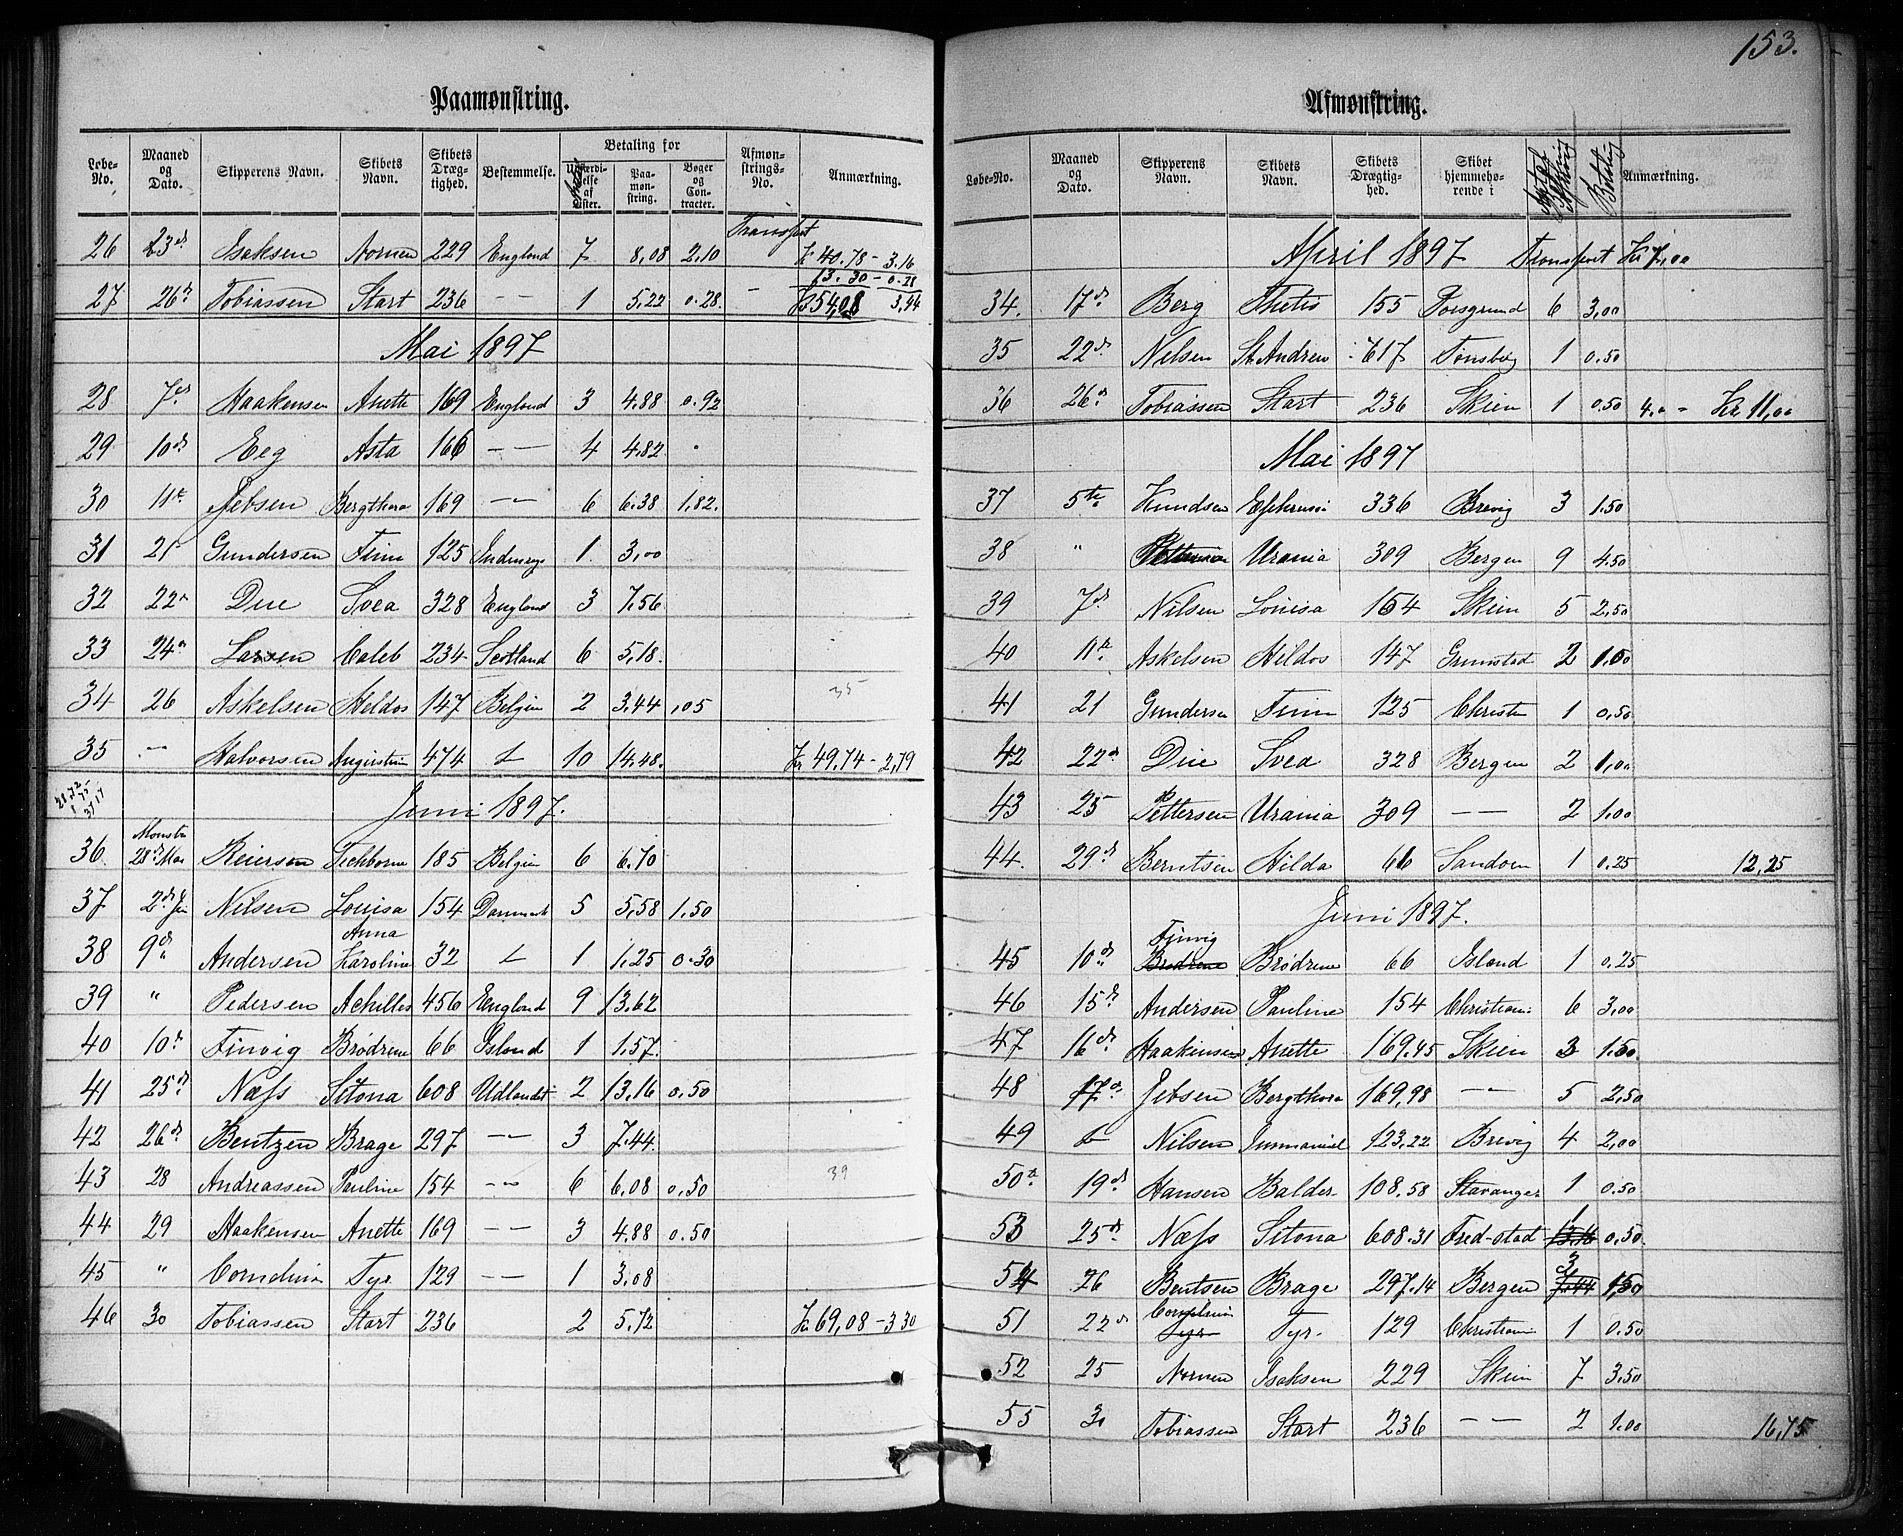 153.
Paamønstring.
Løbe-No. Maaned og Dato. Skipperens Navn. Skibets Navn. Skibets Drægtighed. Bestemmelse. Betaling for Udfærdigelse af Lister. Paamønstring. Bøger og Contracter. Afmønstrings-No. Anmærkning.
Transport
26 23d Isaksen Nornen 229 England 7 8,08 2,10 Kr 40.78 - 3.16
13.30 - 0.28
27 26d Tobiassen Start 236 — 1 5.22 0.28 - Kr 54,08 3,44
Mai 1897
28 7de Haakensen Anette 169 England 3 4.88 0.92
29 10de Eeg Asta 166 — 4 4.82
30 11te Jebsen Bergthora 169 — 6 6.38 1,82.
31 21 Gundersen Finn 125 Indenrigs 1 3,00
32 22d Due Svea 328 England 3 7,56
33 24d Larsen Caleb 234 Scotland 6 5,18
34 26 Askelsen Heldos 147 Belgien 2 3.44 ,05 35
35 — Halvorsen Augustin 474 10 14.48. Kr 49.74 - 2,79
Juni 1897.
Mønstr
36 28d Mai Reiersen Tichborne 185 Belgien 6 6.70
37 2de Jni Nilsen Lovisa 154 Danmark 5 5,58 1,50
38 9de Andersen Anna Karoline 32 1 1,25 0.30
39 " Pedersen Achilles 456 England 9 13,62
40 10d Finvig Brødrene 66 Island 1 1,57.
41 25d Næss Sitona 608 Udlandet 2 13,16 0,50
42 26d Bentzen Brage 297 — 3 7.44.
43 28 Andreassen Pauline 154 — 6 6.08 0.50 39
44 29 Haakensen Anette 169 — 3 4.88 0.50
45 " Cornelius Tyr 129 — 1 3.08
46 30 Tobiassen Start 236 2 5.72 Kr 69,08 - 3 30
Afmønstring.
Løbe-No. Maaned og Dato. Skipperens Navn. Skibets Navn. Skibets Drægtighed. Skibet hjemmehørende i Anmærkning.
April 1897 Transport Kr 7,00
34. 17d Berg Thetis 155 Porsgrund 6 3,00
35 22d Nilsen St Andrew 617 Tønsberg 1 0.50
36 26d Tobiassen Start 236 Skien 1 0,50 4,0 - Kr 11,00
Mai 1897
37 5te Knudsen Ephrusi 336 Brevig 3 1.50
38 " Pettersen Urania 309 Bergen 9 4.50
39 7d Nilsen Lovisa 154 Skien 5 2,50
40 11te Askelsen Hildos 147 Grimstad 2 1.00
41 21 Gundersen Finn 125 Christn 1 0,50
42 22d Due Svea 328 Bergen 2 1,00
43 25 Pettersen Urania 309 — 2 1.00
44. 29d Berntsen Hilda 66 Sandoen 1 0.25 12,25
Juni 1897.
45 10d Finvig Brødrene Brødrene 66 Island 1 0.25
46 15d Andersen Pauline 154 Christiani 6 3,00
47 16d Haakensen Anette 169.45 Skien 3 1.50
48 17d Jebsen Bergthora 169,98 — 5 2,50
49 Nilsen Immanuel 123.22 Brevig 4 2,00
50 19d Hansen Balder 108.58 Stavanger 1 0.50
53 25d Næss Sitona 608.31 Fred-stad 13.16 1 0,50
54 26 Bentsen Brage 297.14 Bergen 7.44 3 1,50
51 22d Tyr Cornelius Tyr. 129 Christiani 1 0.50
52 25 Nornen Isaksen 229 Skien 7 3.50
55 30 Tobiassen Start 236 — 2 1.00 16,75